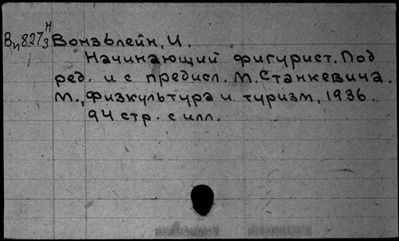 Вн827/3 Н Вонзьлейн, И.
Начинающий фигурист. Под
ред. и с предисл. М. Станкевича.
М., Физкультура и туризм, 1936.
94 стр. с илл.